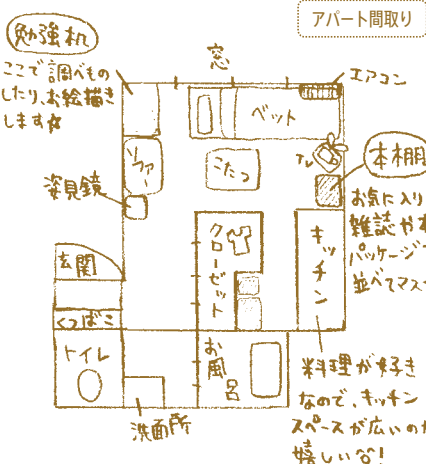 アパート間取り
勉強机
ここで調べもの
したり、お絵描き
します☆
窓
エアコン
ベット
ソファー
こたつ
TV
本棚
姿見鏡
お気に入り
雑誌や本
パッケージ
並べてマス
クローゼット
キッチン
玄関
くつばこ
トイレ
お風呂
洗面所
料理が好き
なので、キッチン
スペースが広いのが
嬉しいな!